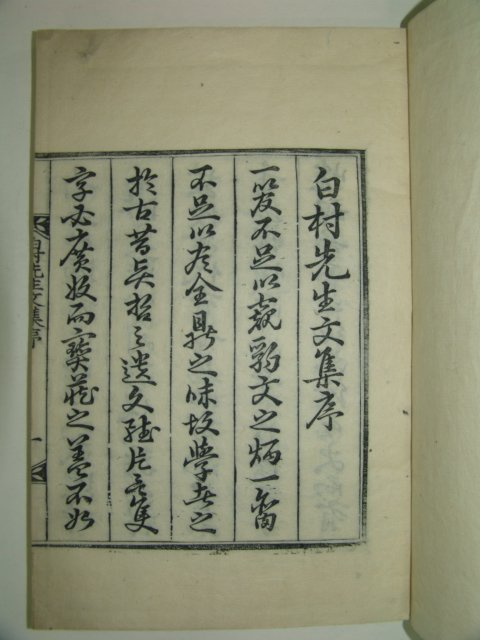 白村先生文集序
一斑不足以窺豹文之炳一臠
不足以全鼎之味故學者之
於古昔哲之遺文雖片言隻
字必廣收而寶藏之蓋不如
白村先生文集序 一